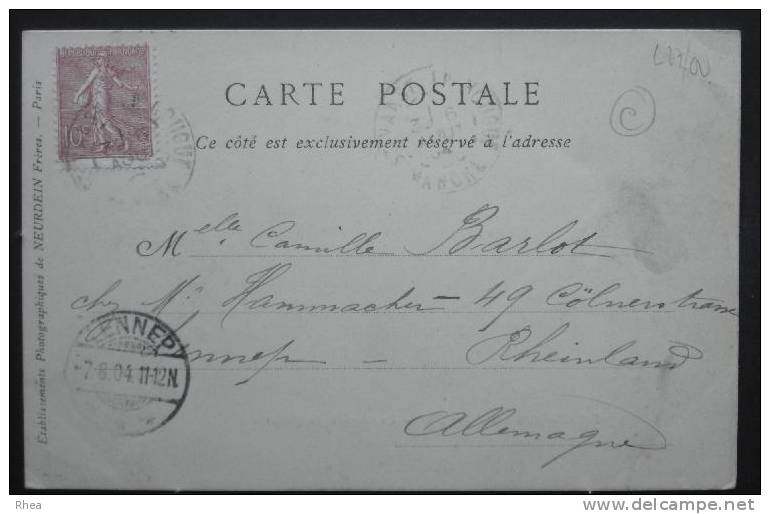 CARTE POSTALE
Ce côté est exclusivement réservé à l'adresse
Melle Camille Barlot
chez Mr Hammacher - 49 Cölnerstrasse
- Rheinland
Allemagne
Établissements Photographiques de NEURDEIN Frères. — Paris
10c
MANCHE
7.8.04.11-12N.
C
Rhea
delcampe.net